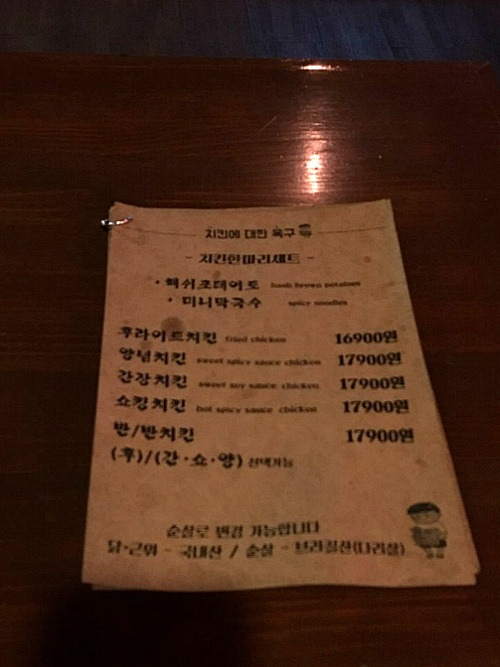 치킨에 대한 욕구
- 치킨한마리세트 -
• 해쉬포테이토 hash brown potatoes
• 미니막국수 spicy noodles
후라이드치킨 fried chicken 16900원
양념치킨 sweet spicy sauce chicken 17900원
간장치킨 sweet soy sauce chicken 17900원
쇼킹치킨 hot spicy sauce chicken 17900원
반/반치킨 17900원
(후)/(간·쇼·양) 선택가능
순살로 변경 가능합니다
닭·근위 - 국내산 / 순살 - 브라질산(다리살)